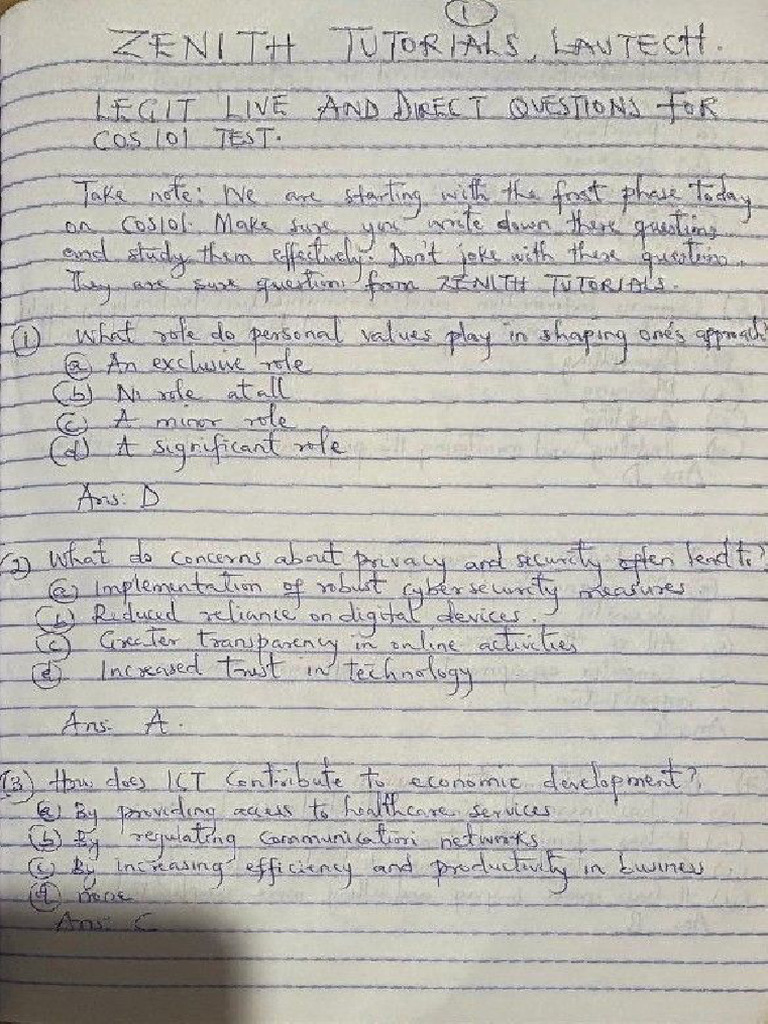 1
ZENITH TUTORIALS, LAUTECH.
LEGIT LIVE AND DIRECT QUESTIONS FOR
COS 101 TEST.
Take note: We are starting with the first phase today
on COS101. Make sure you write down these questions
and study them effectively. Don't joke with these questions.
They are sure questions from ZENITH TUTORIALS.
(1) What role do personal values play in shaping one's approach?
(a) An exclusive role
(b) No role at all
(c) A minor role
(d) A significant role
Ans: D
(2) What do concerns about privacy and security often lead to?
(a) Implementation of robust cybersecurity measures
(b) Reduced reliance on digital devices.
(c) Greater transparency in online activities
(d) Increased trust in technology
Ans. A.
(3) How does ICT contribute to economic development?
(a) By providing access to healthcare services
(b) By regulating communication networks
(c) By increasing efficiency and productivity in business
(d) none
Ans: C